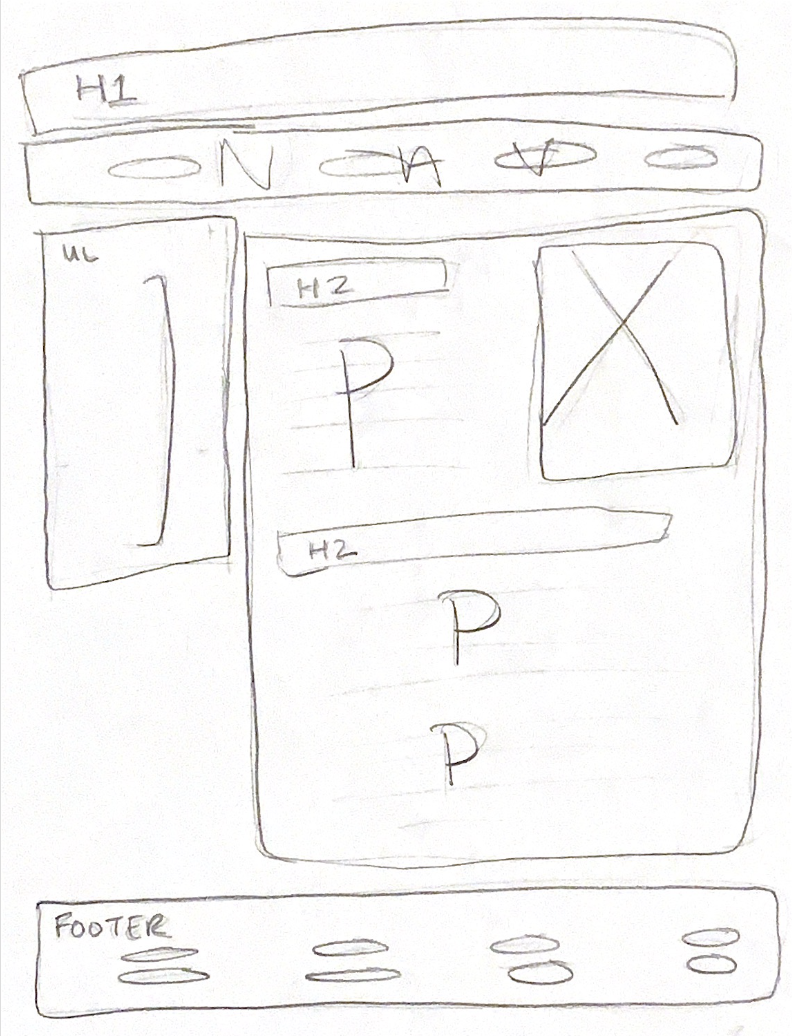 H1
NAV
UL
H2
P
H2
P
P
FOOTER